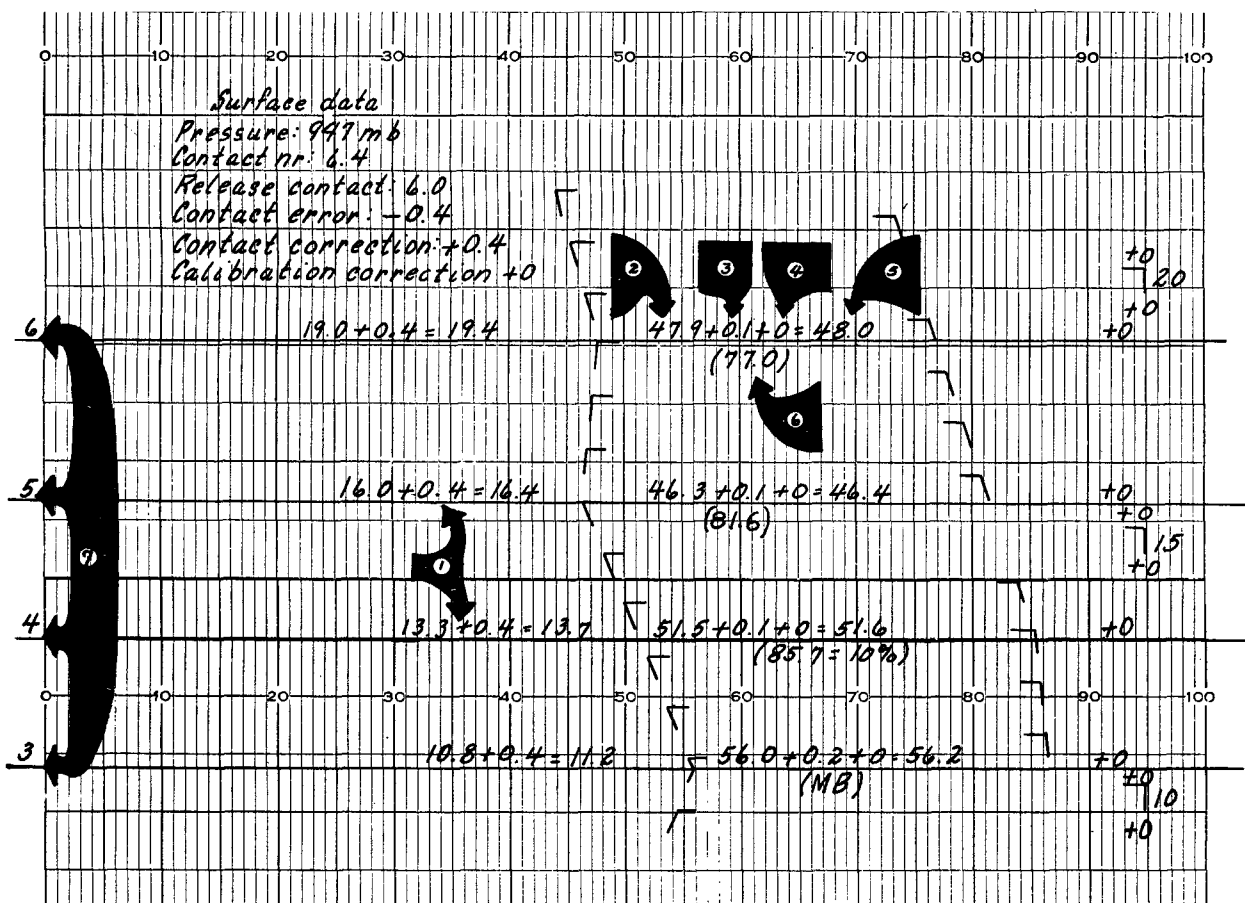 0 10 20 30 40 50 60 70 80 90 100
Surface data
Pressure: 947 mb
Contact nr: 6.4
Release contact: 6.0
Contact error: -0.4
Contact correction: +0.4
Calibration correction +0
2 3 4 5
+0
20
+0
6 19.0+0.4=19.4 47.9+0.1+0=48.0 +0
(77.0)
6
5 16.0+0.4=16.4 46.3+0.1+0=46.4 +0
(81.6) +0
15
7 1 +0
4 13.3+0.4=13.7 51.5+0.1+0=51.6 +0
(85.7=10%)
0 10 20 30 40 50 60 70 80 90 100
3 10.8+0.4=11.2 56.0+0.2+0=56.2 +0
(MB) +0
10
+0